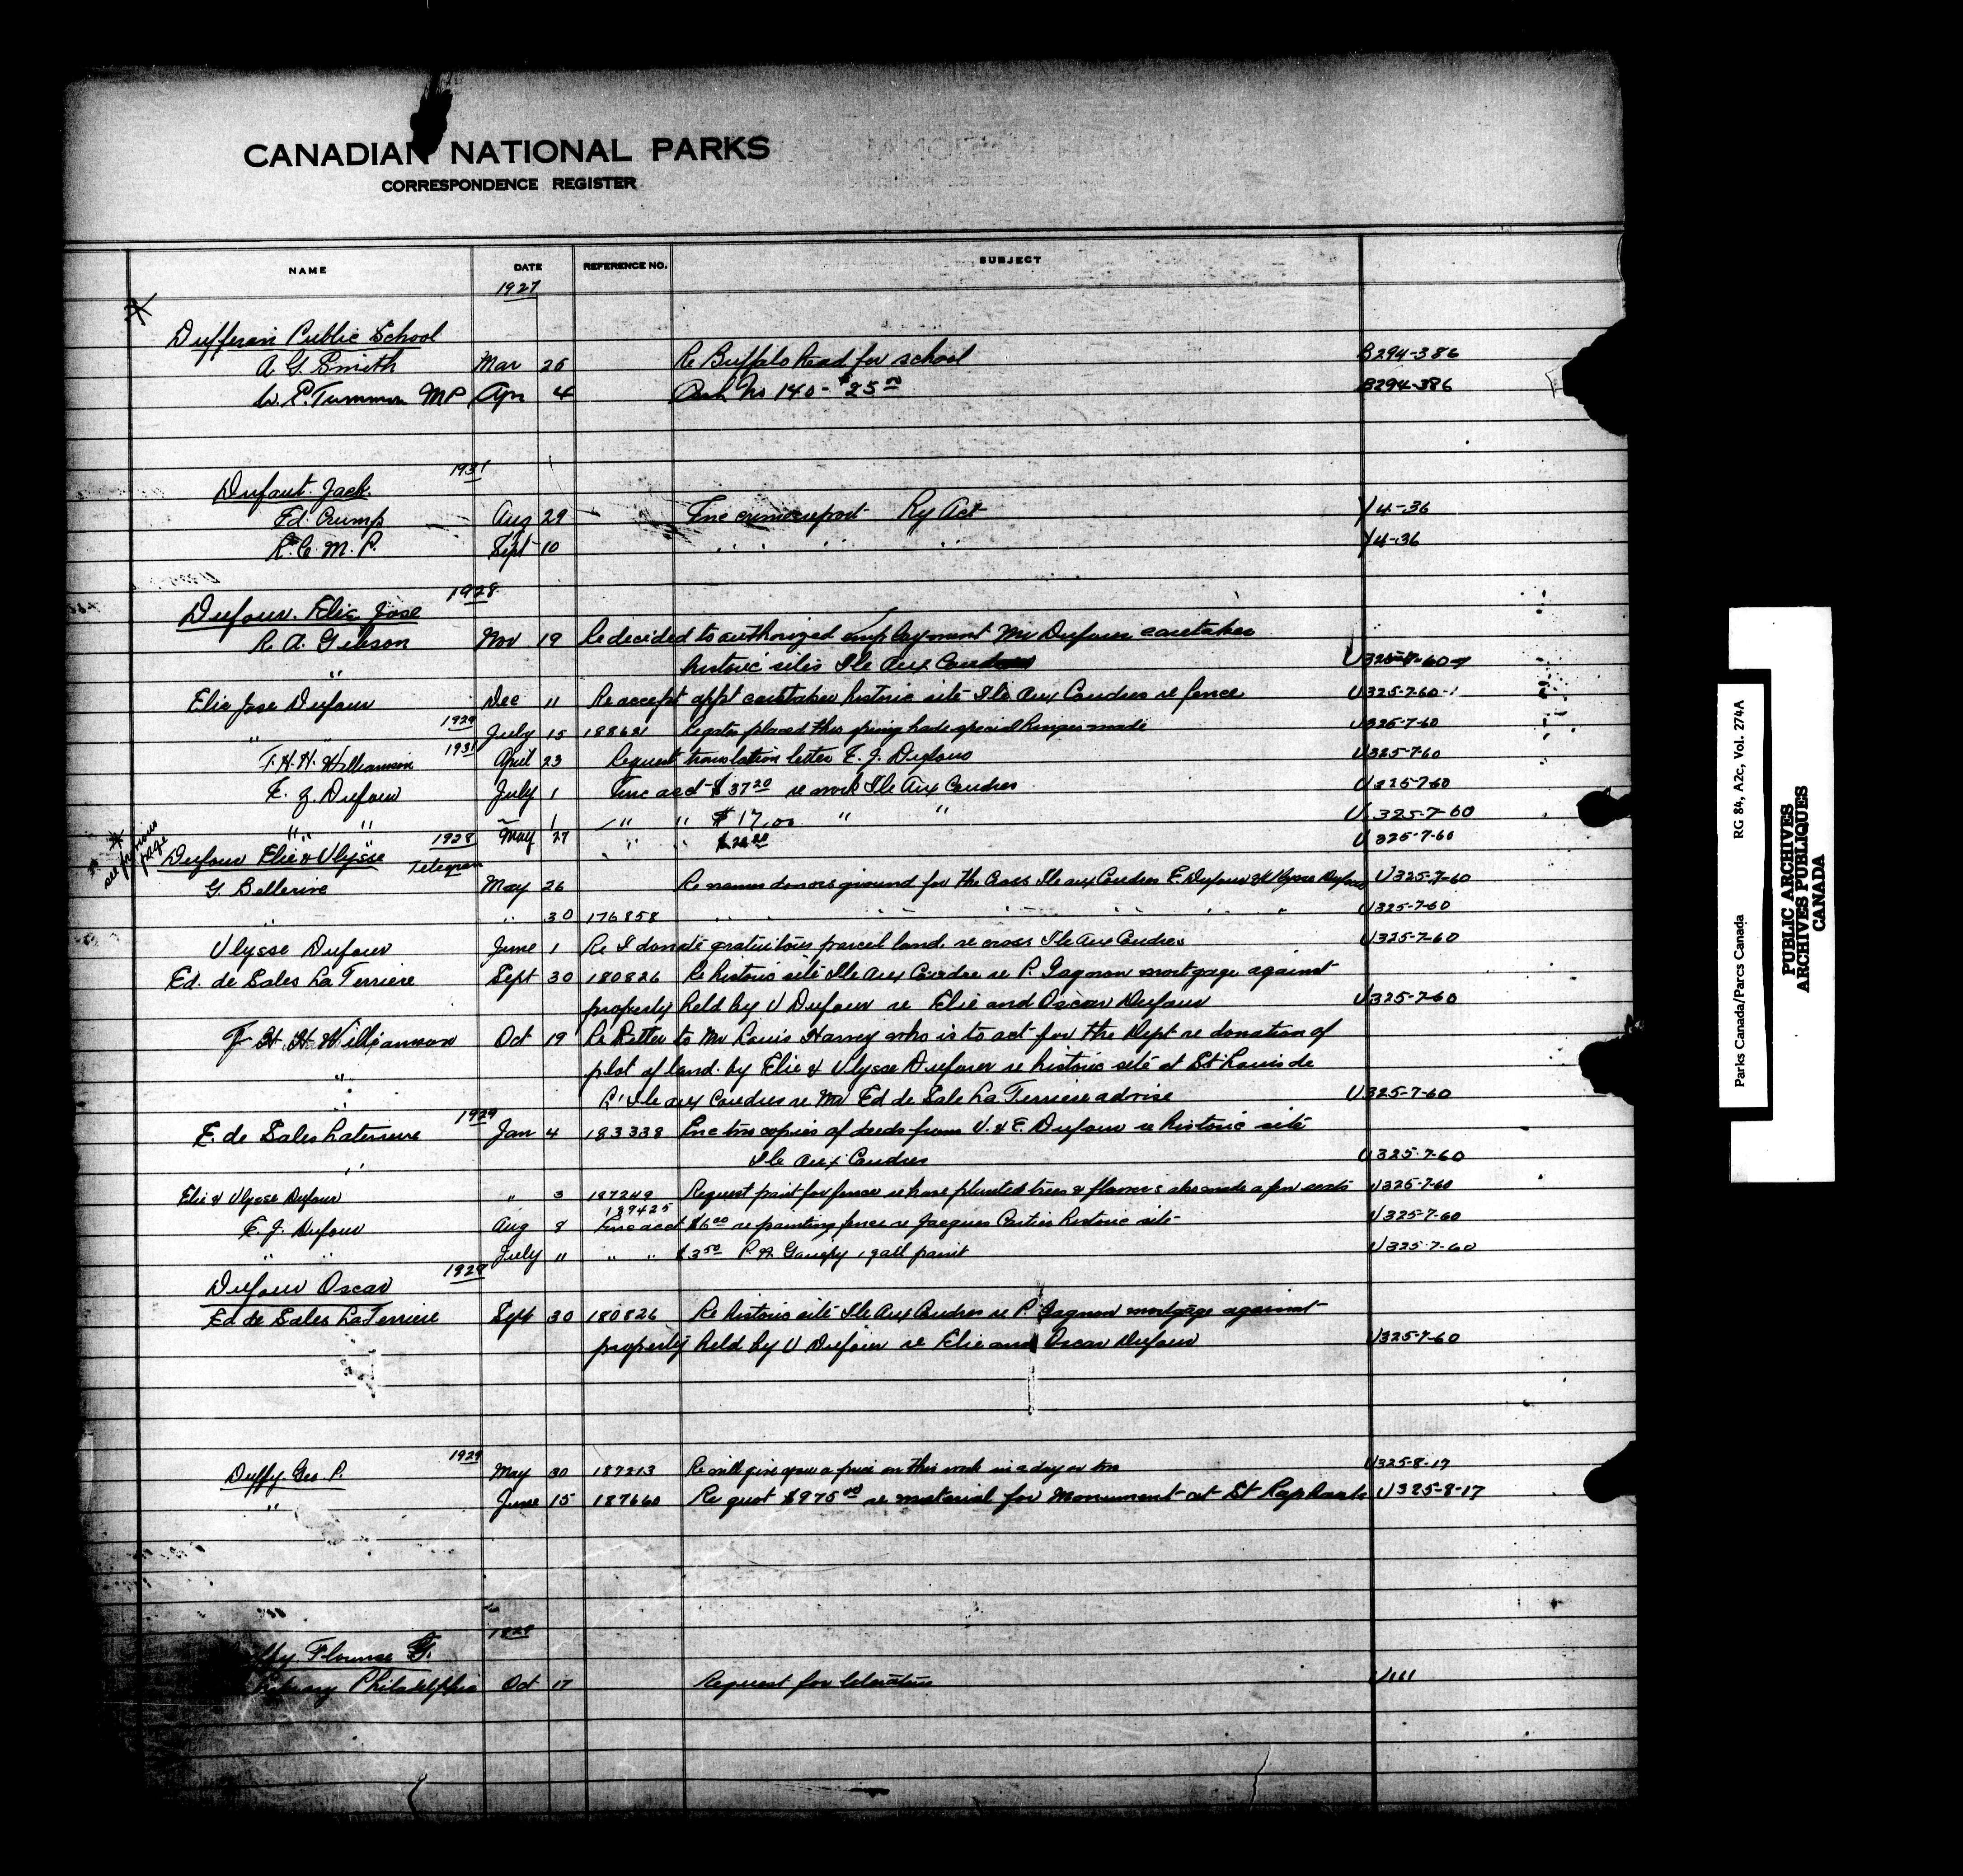 CANADIAN NATIONAL PARKS
CORRESPONDENCE REGISTER
NAME DATE REFERENCE NO. SUBJECT
1927
Dufferin Public School
A G Smith Mar 26 Re Buffalo head for school B294-386
W. E. Tummon MP Apr 4 No 140 - $25 00 B294-386
1931
Dufaut Jack.
Ed. Crump Aug 29 Enc crime report Ry Act Y4-36
R. C. M. P. Sept 10 " " " Y4-36
1928
Dufour. Elie Jose
R. A. Gibson Nov 19 Re decided to authorized employment Mr Dufour caretaker
" historic sites Ile Aux Coudres U325-7-60-1
Elie Jose Dufour Dec 11 Re accept appt caretaker historic site Ile Aux Coudres re fence U325-7-60-1
" " 1929 July 15 188621 Re gates placed this spring had special hinges made U325-7-60
F. H. H. Williamson 1931 April 23 Request translation letter E. J. Dufour U325-7-60
E. J. Dufour July 1 Enc acct $37 20 re work Ile Aux Coudres U325-7-60
" " " 1 " " $17.00 " " U325-7-60
1928 May 27 " " U325-7-60
* see previous page
Dufour Elie & Ulysse Telegram
G. Bellerive May 26 Re names donors ground for the Cross Ile aux Coudres E. Dufour & Ulysse Dufour U325-7-60
" " 30 176858 " " " " " " " U325-7-60
Ulysse Dufour June 1 Re I donate gratuitous parcel land re cross Ile Aux Coudres U325-7-60
Ed. de Sales La Terriere Sept 30 180826 Re historic site Ile Aux Coudre re P. Gagnon mortgage against
property held by U Dufour re Elie and Oscar Dufour U325-7-60
F. H. H. Williamson Oct 19 Re letter to Mr Louis Harvey who is to act for the Dept re donation of
" plot of land. by Elie & Ulysse Dufour re historic site at St Louis de
" L'Ile aux Coudres re Mr Ed de Sale La Terriere advise U325-7-60
1929
E. de Sales Laterriere Jan 4 183338 Enc two copies of deeds from U. & E. Dufour re historic site
" Ile Aux Coudres U325-7-60
Elie & Ulysse Dufour " 3 187249 Request paint for fence re have planted trees & flowers also made a few seats U325-7-60
189425
E. J. Dufour Aug 8 Enc acct $6 00 re painting fence re Jacques Cartier historic site U325-7-60
" " July 11 " " $3 50 1 gall paint U325-7-60
1929
Dufour Oscar
Ed de Sales La Terriere Sept 30 180826 Re historic site Ile Aux Coudres re P. Gagnon mortgage against
property held by U Dufour re Elie and Oscar Dufour U325-7-60
1929
Duffy. Geo. P. May 30 187213 Re will give you a price on this work in a day or two U325-8-17
" June 15 187660 Re quot $975 00 re material for Monument at St Raphaels U325-8-17
1928
Florence G.
Philadelphia Oct 17 Request for literature U111
Parks Canada/Parcs Canada RG 84, A2c, Vol. 274A
PUBLIC ARCHIVES
ARCHIVES PUBLIQUES
CANADA